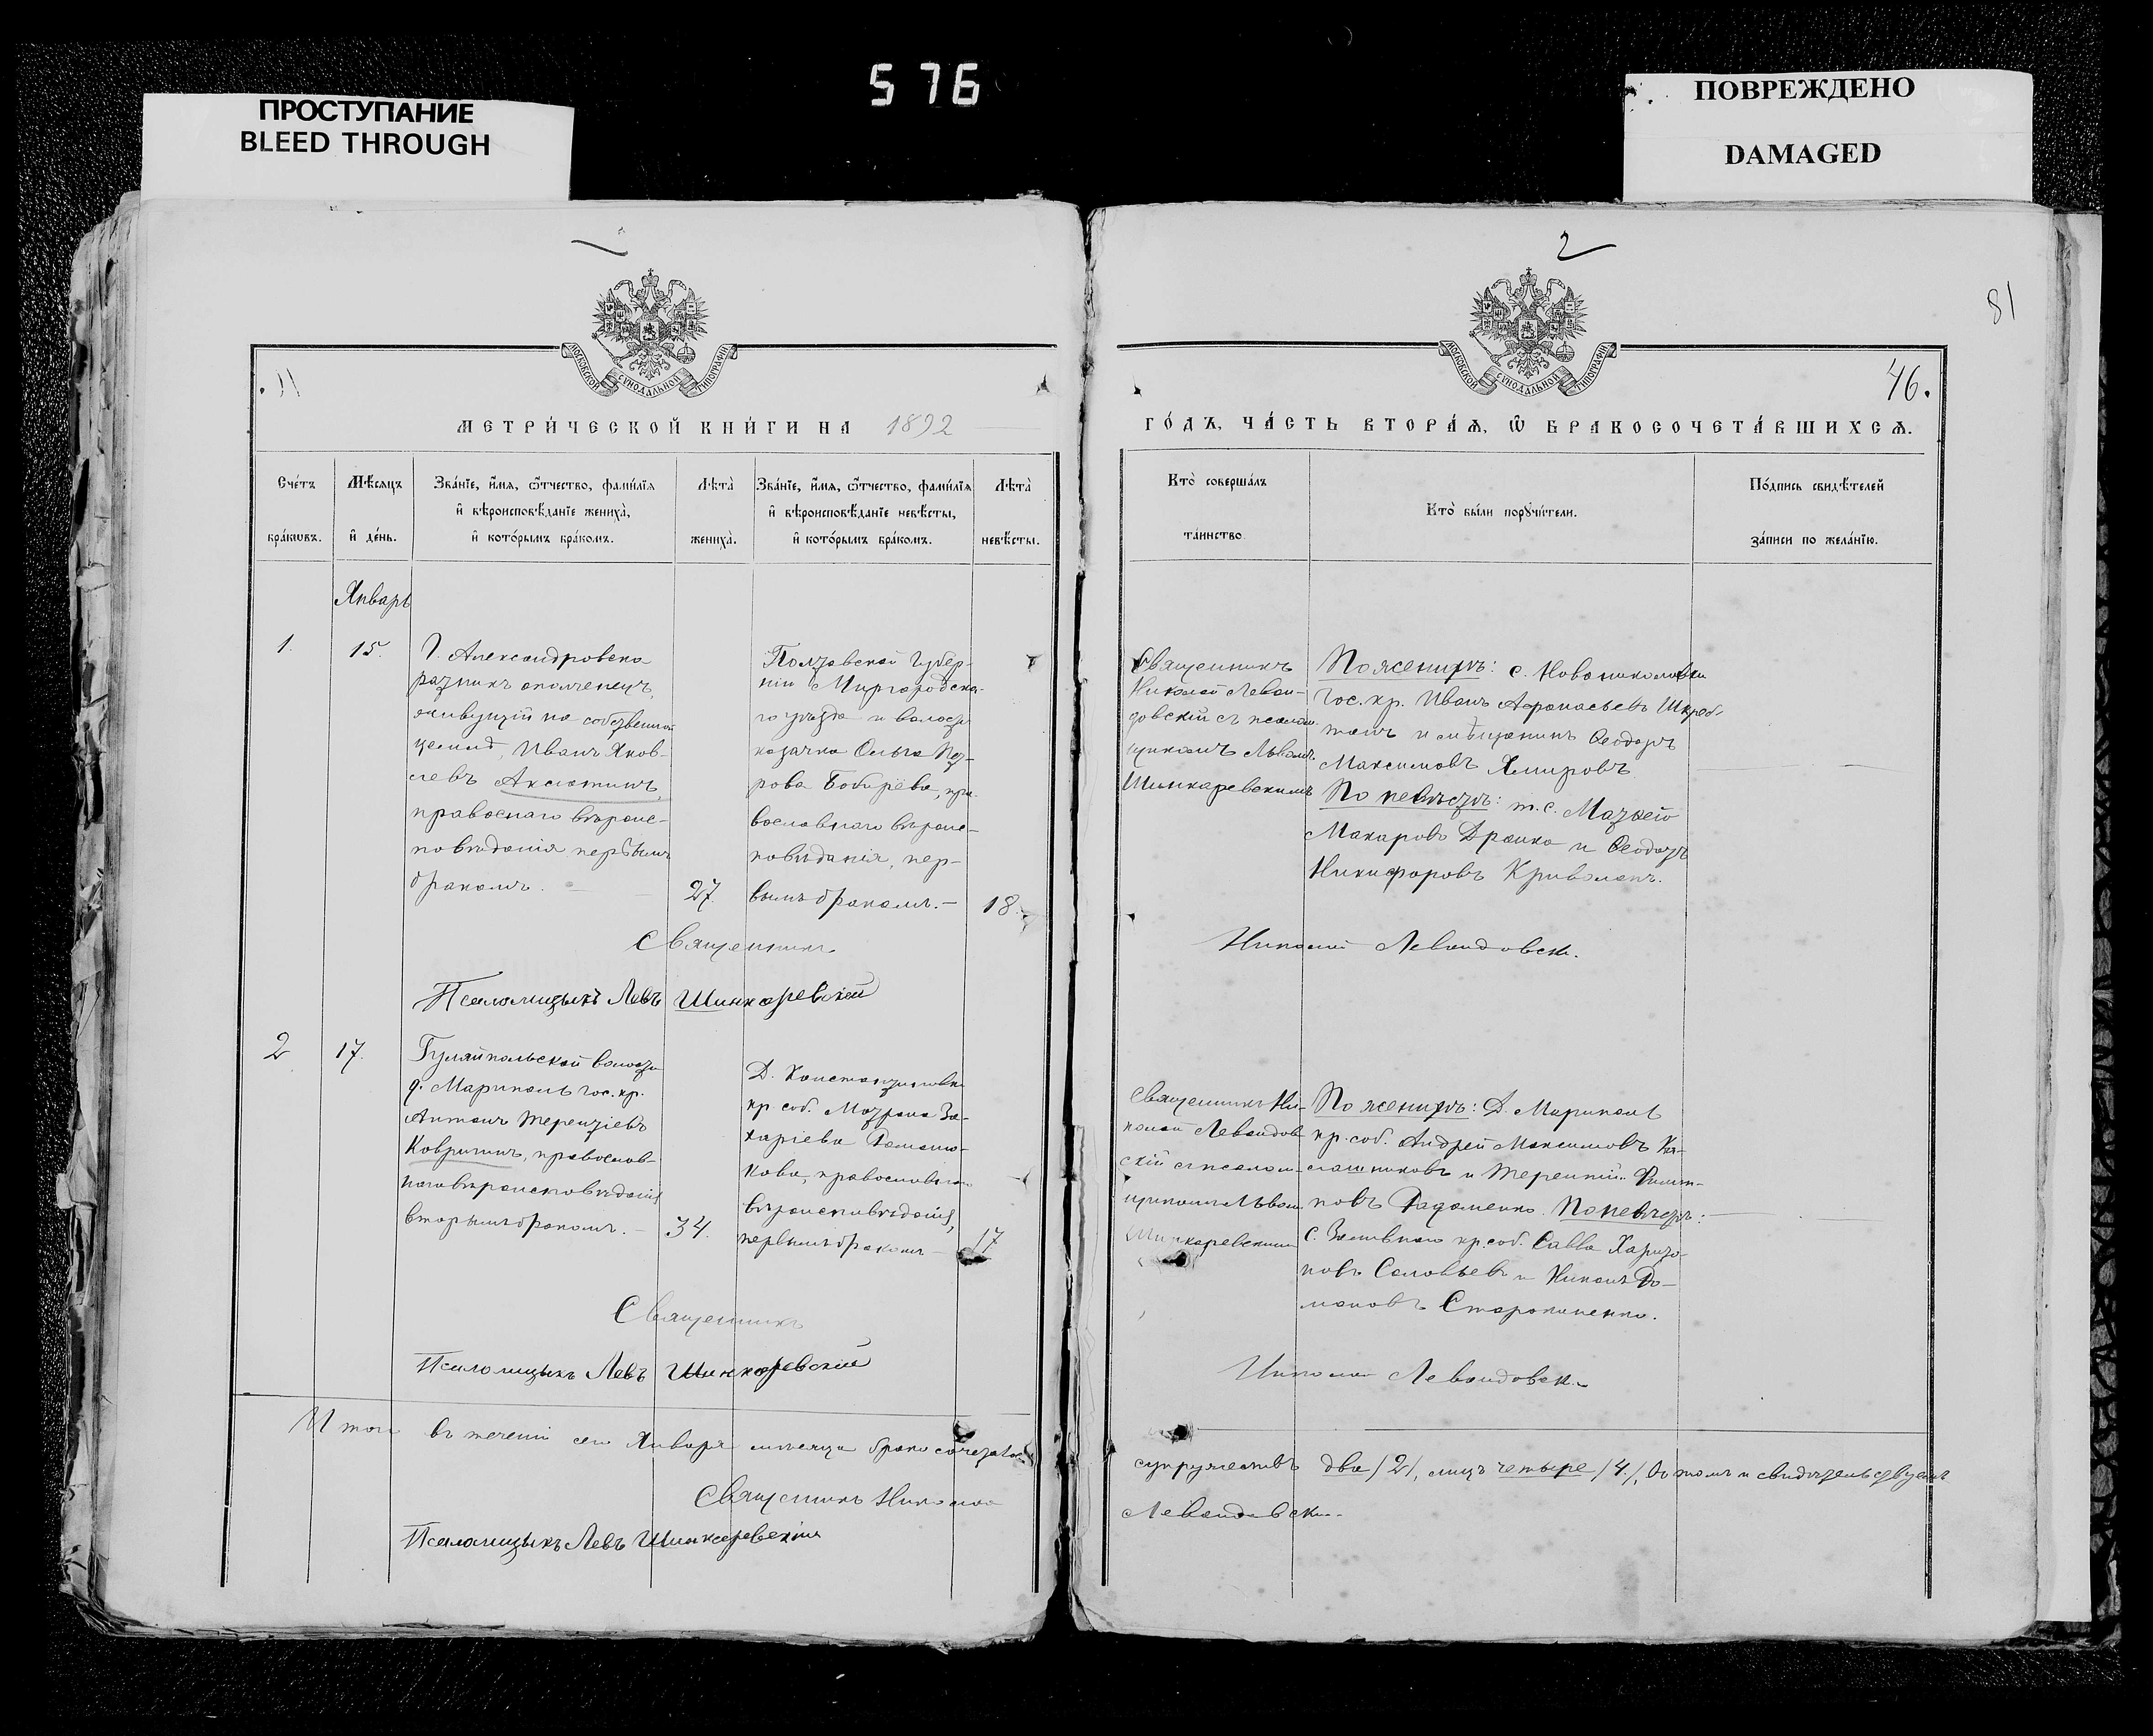 576
ПРОСТУПАНИЕ
BLEED THROUGH
ПОВРЕЖДЕНО
DAMAGED
2
81
46.
МОСКОВСКОЙ СѴНОДАЛЬНОЙ ТИПОГРАФІИ
МОСКОВСКОЙ СѴНОДАЛЬНОЙ ТИПОГРАФІИ
МЕТРИ́ЧЕСКОЙ КНИ́ГИ НА 1892
ГО́ДЪ, ЧА́СТЬ ВТОРА́Ѧ, Ѿ БРАКОСОЧЕТА́ВШИХСѦ.
Сче́тъ бра́кѡвъ.
Мѣ́сяцъ и҆ де́нь.
Зва́нїе, и҆́мя, ѻ҆́тчество, фами́лїя и҆ вѣроисповѣ́данїе жениха̀, и҆ кото́рымъ бра́комъ.
Лѣта̀ жениха̀.
Зва́нїе, и҆́мя, ѻ҆́тчество, фами́лїя и҆ вѣроисповѣ́данїе невѣ́сты, и҆ кото́рымъ бра́комъ.
Лѣта̀ невѣ́сты.
Кто̀ соверша́лъ та́инство.
Кто̀ бы́ли порꙋчи́тели.
По́дпись свидѣ́телей за́писи по жела́нїю.
Январь
1.
15.
Г. Александровска
ратникъ ополченецъ,
живущій на собственной
землѣ, Иванъ Яков-
левъ Аксютинъ,
правоснаго вѣроис-
повѣданія первымъ
бракомъ.
27.
Полтавской Губер-
ніи Миргородска-
го уѣзда и волости
казачка Ольга Пет-
рова Бобырёва, пра-
вославнаго вѣроис-
повѣданія, пер-
вымъ бракомъ.-
18.
Священникъ
Николай Леван-
довскій съ псалом-
щикомъ Львомъ
Шинкаревскимъ
По женихѣ: с. Новониколаевки
Гос. кр. Иванъ Афанасьевъ
и мѣщанинъ Ѳеодоръ
Максимовъ
По невѣстѣ: т. с. Матвей
Макаровъ Драика и Ѳеодотъ
Никифоровъ Криволапъ.
Священникъ
Николай Левандовск.
Псаломщыкъ Левъ Шинкаревскій
2
17.
Гуляйпольской волости
д. Марполь гос. кр.
Антонъ Терентіевъ
Ковригинъ, православ-
наго вѣроисповѣданія
вторымъ бракомъ.-
34.
Д. Константиновки
кр. соб. Матрона За-
харіева
кова, православнаго
вѣроисповѣданія,
первымъ бракомъ-
17
Священникъ Ни-
колай Левандов-
скій съ псалом-
щикомъ Львомъ
Шинкаревскимъ
По женихѣ: Д. Мариполь
кр. соб. Андрей Максимовъ Ка-
лашниковъ и Терентій Филип-
повъ Радоменко. По невѣстѣ:
С. Заливнаго кр. соб. Савва Харито-
новъ Соловьевъ и Никонъ Ро-
мановъ
Священникъ
Николай Левандовск.
Псаломщыкъ Левъ Шинкаревскій
Итого въ теченіи сего Января мѣсяца бракосочетало
супружествъ два /2/, лицъ четыре /4/, О томъ и свидѣтельствуемъ
Священникъ Николай
Левандовски.
Псаломщыкъ Левъ Шинкаревскій